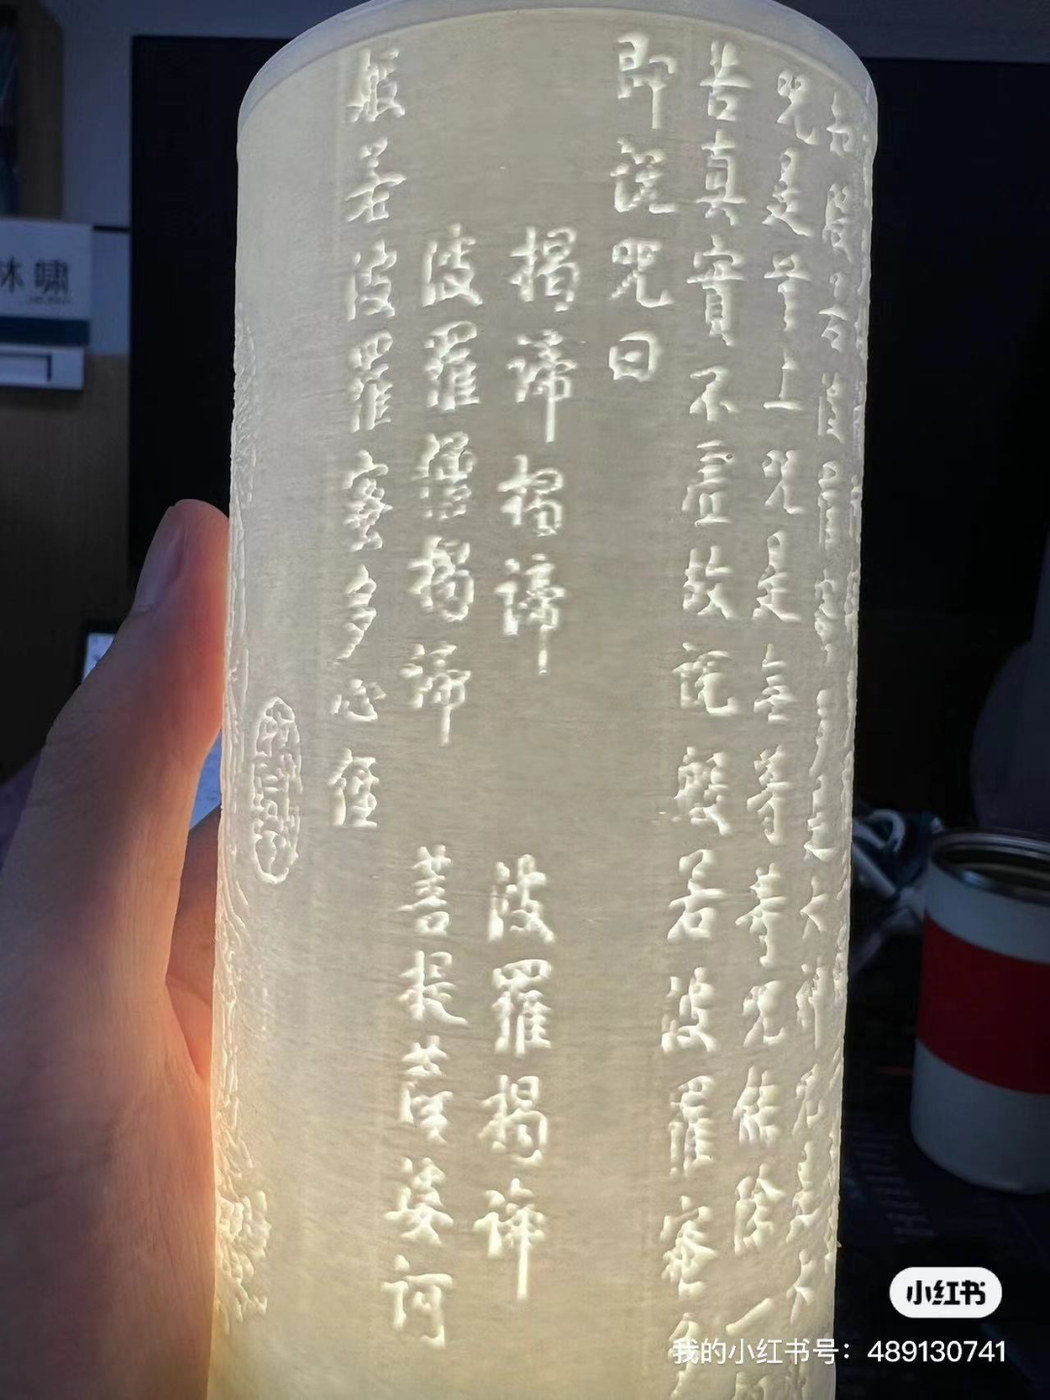 知般若波羅蜜多是大神咒是大
咒是无上咒是無等等咒能除一
苦真實不虛故說般若波羅蜜多
即說咒曰
揭諦揭諦 波羅揭諦
波羅僧揭諦 菩提薩婆訶
般若波羅蜜多心經
林啸
小红书
我的小红书号：489130741